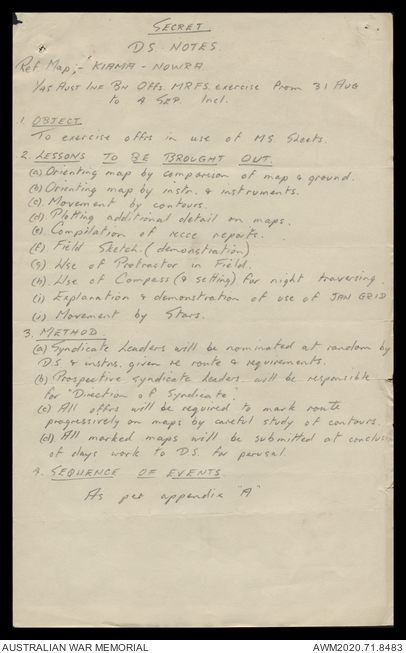 SECRET.
DS. NOTES
Ref. Map:- KIAMA - NOWRA
Y45 AUST INF BN Offs. M.R.F.S. exercise from 31 AUG
to 4 SEP. Incl.
1. OBJECT.
To exercise offrs in use of MS Sheets.
2. LESSONS TO BE BROUGHT OUT.
(a) Orienting map by comparison of map & ground.
(b) Orienting map by instr. & instruments.
(c). Movement by contours.
(d). Plotting additional detail on maps.
(e). Compilation of recce reports.
(f) Field Sketch. (demonstration)
(g). Use of Protractor in Field.
(h). Use of Compass (& setting) for night traversing.
(i) Explanation & demonstration of use of JAN GRID
(j) Movement by Stars.
3. METHOD.
(a) Syndicate Leaders will be nominated at random by
D.S. & instns. given re route & requirements.
(b) Prospective syndicate leaders will be responsible
for "Direction of Syndicate".
(c) All offrs will be required to mark route
progressively on maps by careful study of contours.
(d) All marked maps will be submitted at conclus
of days work to D.S. for perusal.
4. SEQUENCE OF EVENTS
As per appendix "A"
AUSTRALIAN WAR MEMORIAL
AWM2020.71.8483